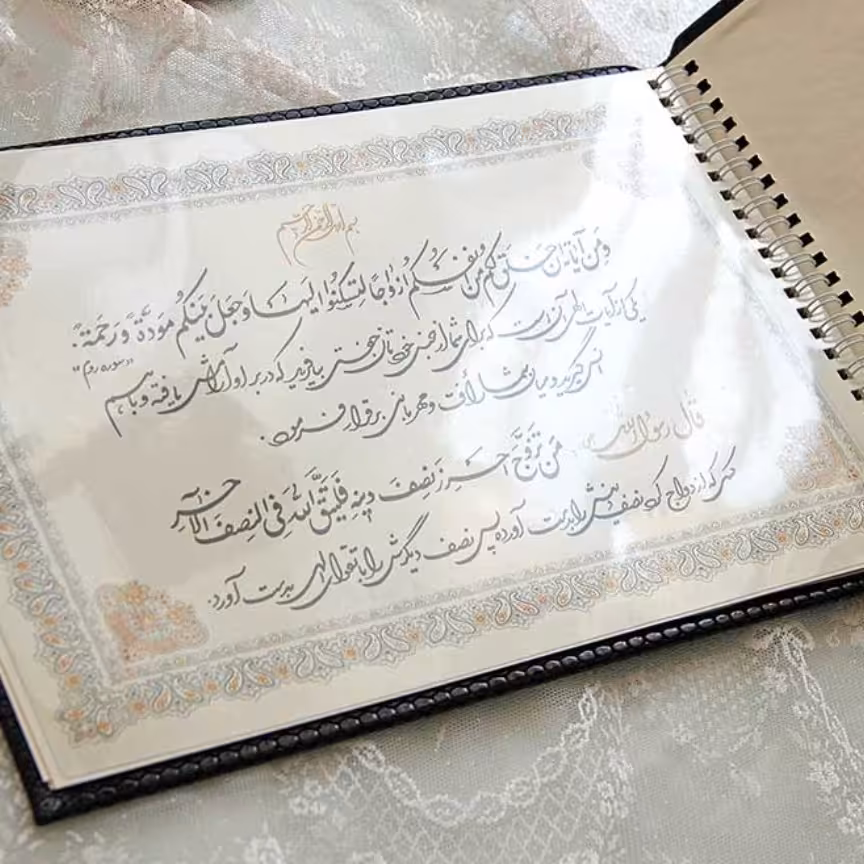 بسم الله الرحمن الرحیم
وَمِن آیاتِهِ اَن خَلَقَ لَکُم مِن اَنفُسِکُم اَزواجًا لِتَسکُنُوا اِلَیها وَجَعَلَ بَینَکُم مَوَدَّةً وَ رَحمَةً:
یکی از آیات الهی آن است که برای شما از جنس خودتان جفتی بیافرید که در بر او آرامش یافته و با هم "سوره روم"
انس گیرید و میان شما رأفت و مهربانی برقرار فرمود.
قال رسول الله
مَن تَزَوَّجَ اَحرَزَ نِصفَ دِینِهِ فَلیَتَّقِ اللهَ فِی النِصفِ الآخَرِ
کسی که ازدواج کند نصف دینش را بدست آورده پس نصف دیگرش را با تقوای الهی بدست آورد.